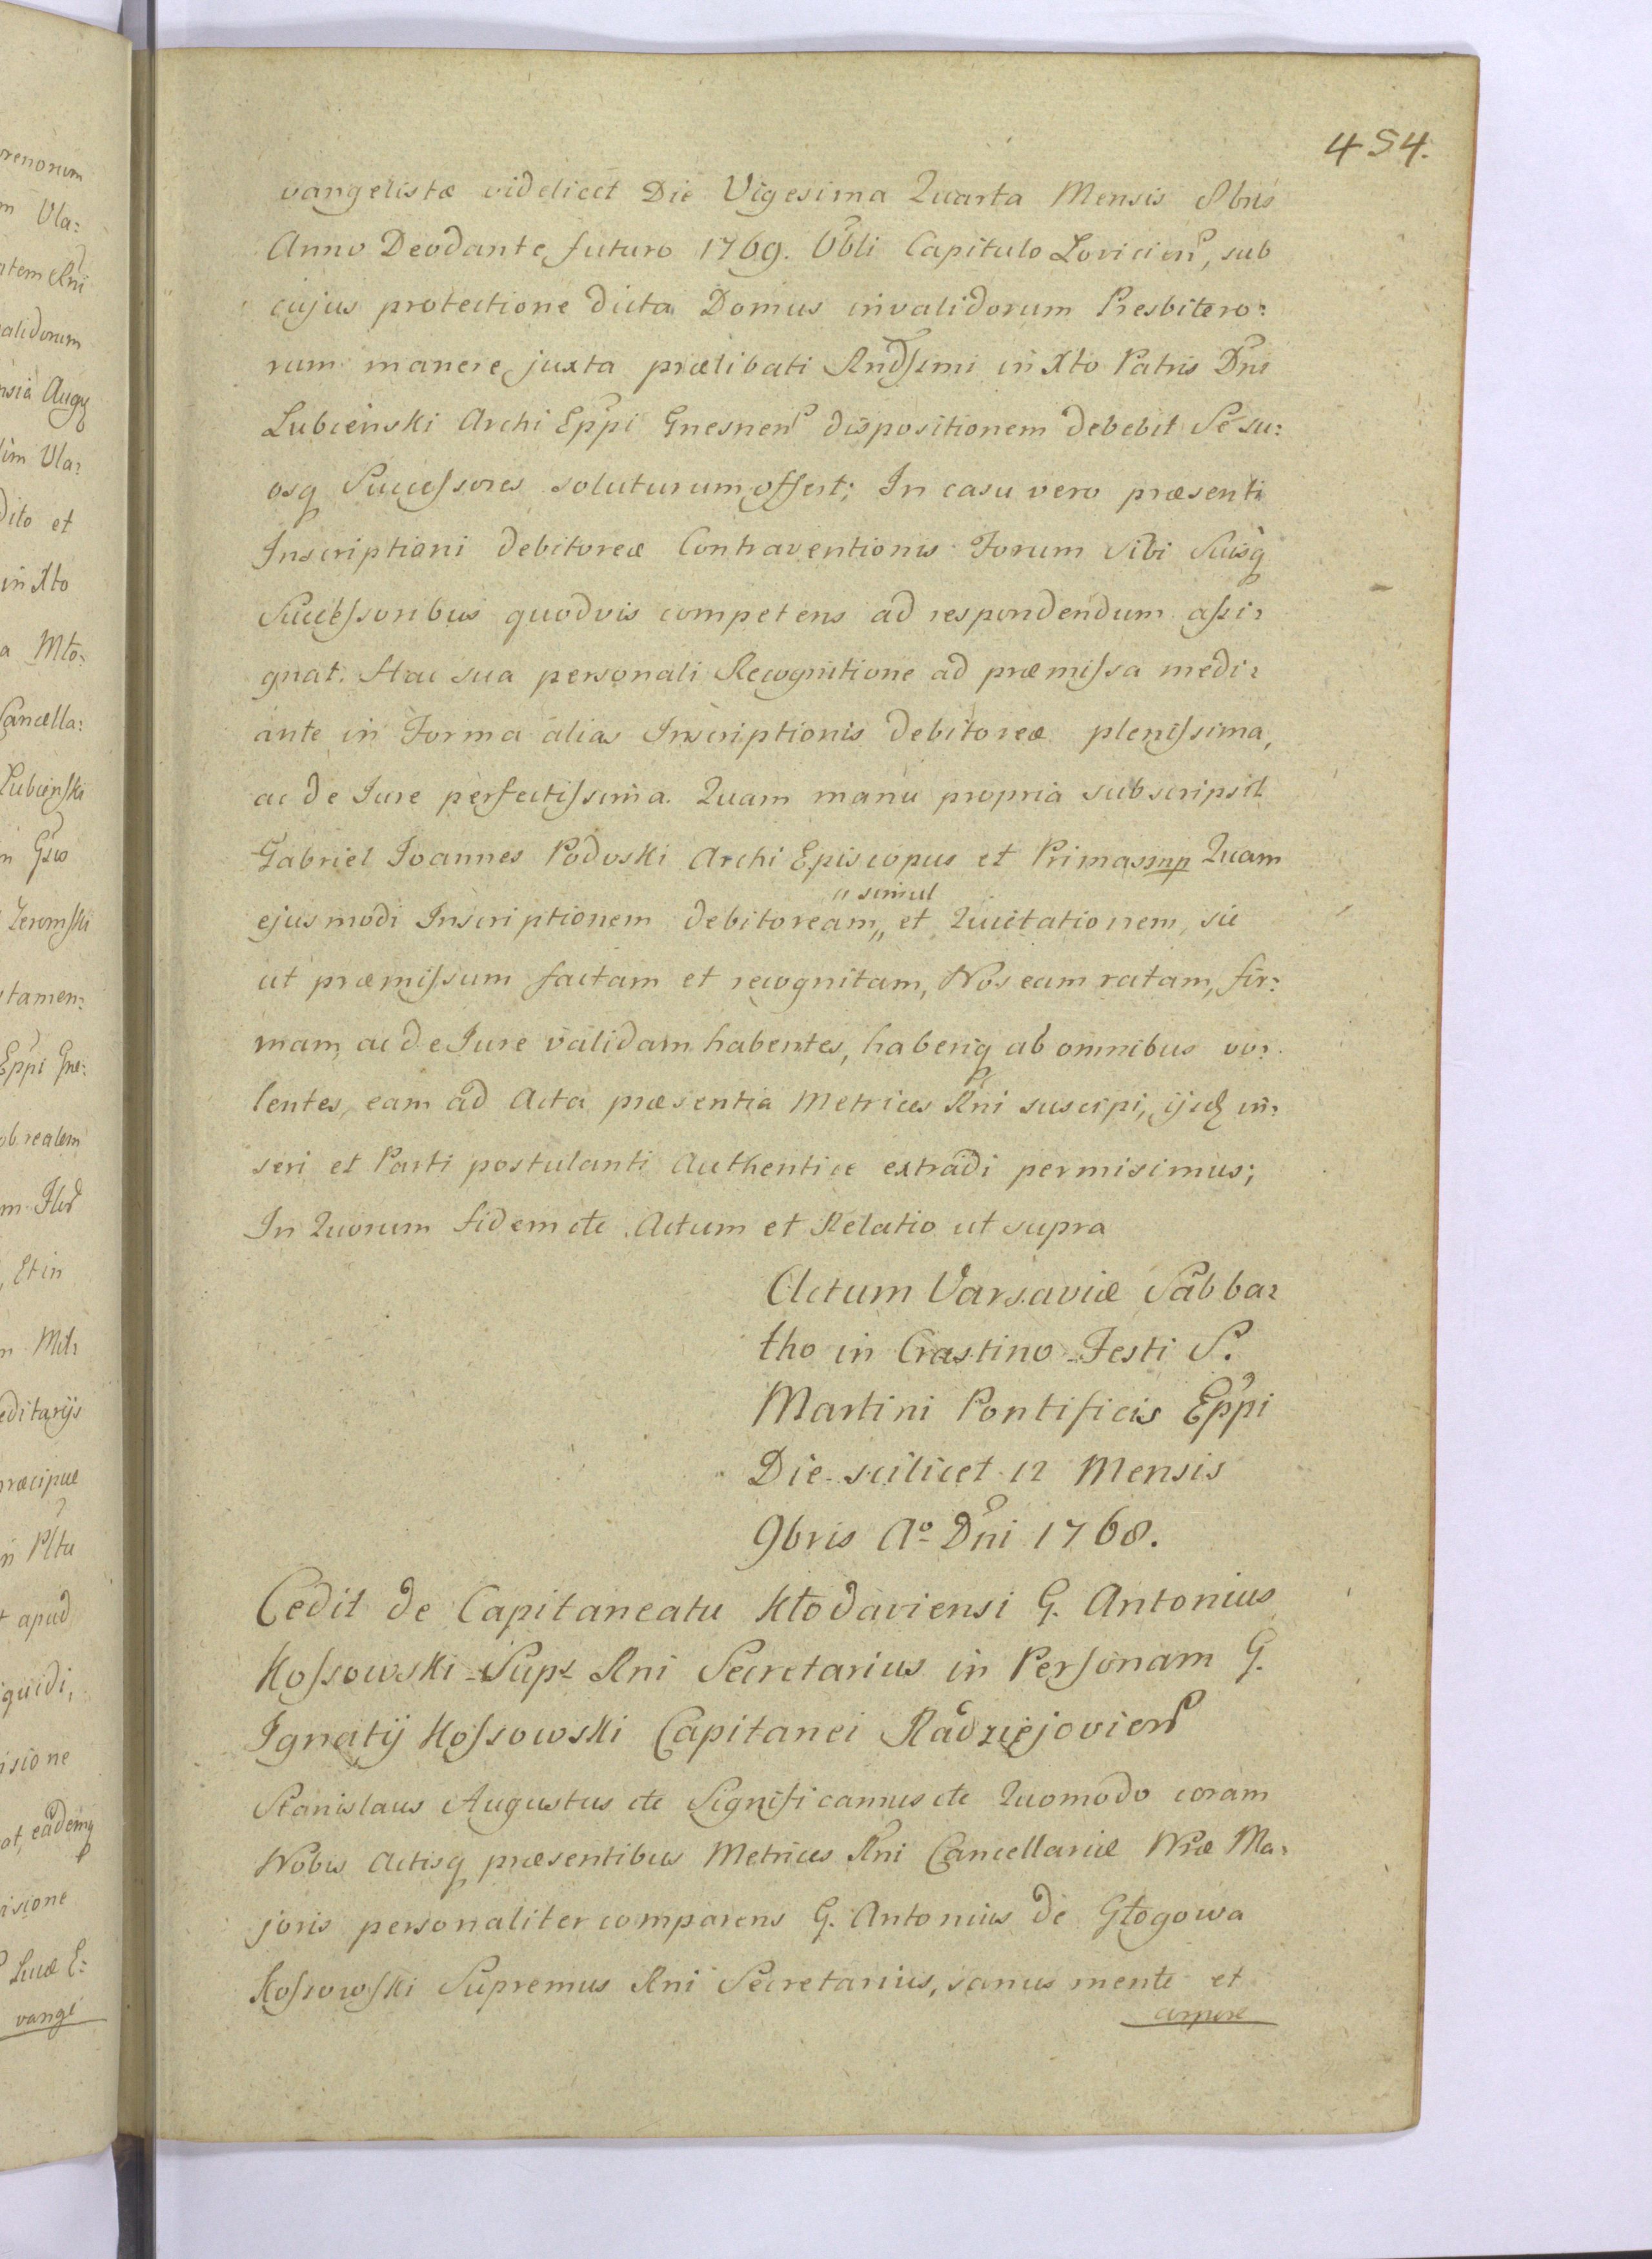 454.
vangelistæ videlicet Die Vigesima Quarta Mensis 8bris
Anno Deo dante futuro 1769. Vbli Capitulo Loviciens, sub
cujus protectione dicta Domus invalidorum Presbitero:
rum manere juxta prælibati Rndssimi in Xto Patris Dni
Lubienski Archi Eppi Gnesnens dispositionem debebit Se su:
osq Successores soluturum offert; In casu vero præsenti
Inscriptioni debitoreæ Contraventionis Forum sibi Suisq
Successoribus quodvis competens ad respondendum assi:
gnat. Hac sua personali Recognitione ad præmissa medi:
ante in Forma alias Inscriptionis debitoreæ plenissima,
ac de Jure perfectissima. Quam manu propria subscripsit
Gabriel Joannes Podoski Archi Episcopus et Primas mp Quam
ejusmodi Inscriptionem debitoream „ simul et Quietationem, sic
ut præmissum factam et recognitam, Nos eam ratam, fir:
mam, ac de Jure validam habentes, haberiq ab omnibus vo:
lentes, eam ad Acta præsentia Metrices Rni suscipi, ijsq in:
seri et Parti postulanti Authentice extradi permisimus;
In Quorum fidem etc Actum et Relatio ut supra
Actum Varsaviæ Sabba:
tho in Crastino Festi S.
Martini Pontificis Eppi
Die scilicet 12 Mensis
9bris Ao Dni 1768.
Cedit de Capitaneatu Kłodaviensi G. Antonius
Kossowski Supr Rni Secretarius in Personam G.
Ignatij Kossowski Capitanei Radziejoviens
Stanislaus Augustus etc Significamus etc Quomodo coram
Nobis Actisq præsentibus Metrices Rni Cancellariæ Nræ Ma:
joris personaliter comparens G. Antonius de Głogowa
Kossowski Supremus Rni Secretarius, sanus mente et
corpore